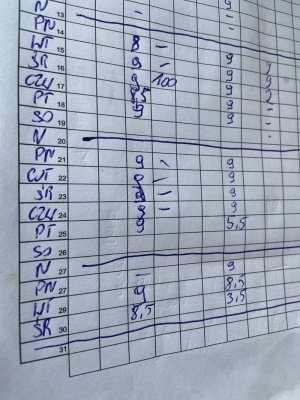 N 13 - -
PN 14 -
WT 15 8 - 9
ŚR 16 9 - 9 9
CZW 17 9 100 9 9
PT 18 8,5 9 2
SO 19 9 9 -
N 20 -
PN 21 9 - 9
WT 22 9
ŚR 23 9
CZW 24 9 - 9
PT 25 9 5,5
SO 26
N 27 - 9
PN 28 9 8,5
WT 29 8,5 3,5
ŚR 30
31